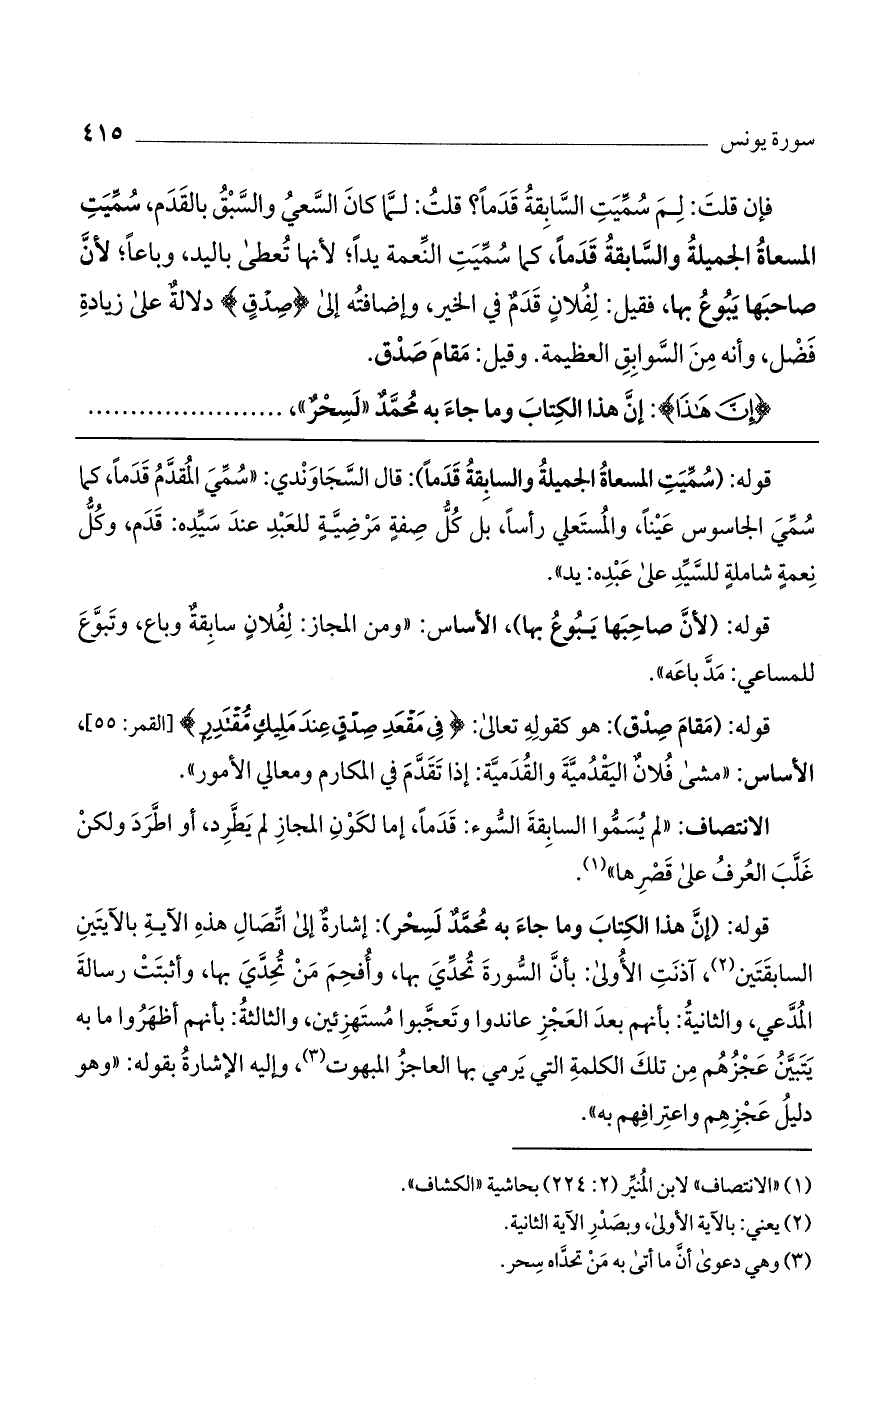 سورة يونس ــــــــــــــــــــــــــــــــــــــــ ٤١٥
فإن قلتَ: لِـمَ سُمِّيَتِ السَّابِقةُ قَدَماً؟ قلتُ: لـمَّا كانَ السَّعيُ والسَّبْقُ بالقَدَم، سُمِّيَتِ
المسعاةُ الجميلةُ والسَّابقةُ قَدَماً، كما سُمِّيَتِ النِّعمة يداً؛ لأنها تُعطىٰ باليد، وباعاً؛ لأنَّ
صاحبَها يَبُوعُ بها، فقيل: لِفُلانٍ قَدَمٌ في الخير، وإضافتُه إلىٰ ﴿صِدْقٍ﴾ دلالةٌ علىٰ زيادةِ
فَضْل، وأنه مِنَ السَّوابِقِ العظيمة. وقيل: مَقامَ صَدْق.
﴿إِنَّ هَٰذَا﴾: إنَّ هذا الكِتابَ وما جاءَ به مُحمَّدٌ «لَسِحْرٌ»، .......................
قوله: (سُمِّيَتِ المسعاةُ الجميلةُ والسابِقةُ قَدَماً): قال السَّجاوَندي: «سُمِّيَ المُقدَّمُ قَدَماً، كما
سُمِّيَ الجاسوس عَيْناً، والمُستَعلي رأساً، بل كُلُّ صِفةٍ مَرْضِيَّـةٍ للعَبْدِ عندَ سَيِّدِه: قَدَم، وكُلُّ
نِعمةٍ شاملةٍ للسَّيِّدِ علىٰ عَبْدِه: يد».
قوله: (لأنَّ صاحِبَها يَـبُوعُ بها)، الأساس: «ومن المجاز: لِفُلانٍ سابِقةٌ وباع، وتَبوَّعَ
للمساعي: مَدَّ باعَه».
قوله: (مَقامَ صِدْق): هو كقولِهِ تعالىٰ: ﴿فِي مَقْعَدِ صِدْقٍ عِندَ مَلِيكٍ مُّقْتَدِرٍ﴾ [القمر: ٥٥]،
الأساس: «مشىٰ فُلانٌ اليَقْدُميَّةَ والقُدَميَّة: إذا تَقَدَّمَ في المكارم ومعالي الأمور».
الانتصاف: «لم يُسَمُّوا السابِقةَ السُّوء: قَدَماً، إما لكَوْنِ المجازِ لم يَطَّرِد، أو اطَّرَدَ ولكنْ
غَلَّبَ العُرفُ علىٰ قَصْرِها»(١).
قوله: (إنَّ هذا الكِتابَ وما جاءَ به مُحمَّدٌ لَسِحْر): إشارةٌ إلىٰ اتِّصَالِ هذهِ الآيـةِ بالآيتَينِ
السابقَتَين(٢)، آذنَتِ الأُولىٰ: بأنَّ السُّورةَ تُحدِّيَ بها، وأُفحِمَ مَنْ تُحِدِّيَ بها، وأثبتَتْ رسالةَ
المُدَّعي، والثانيةُ: بأنهم بعدَ العَجْزِ عاندوا وتَعجَّبوا مُستَهزِئين، والثالثةُ: بأنهم أظهَرُوا ما به
يَتَبيَّنُ عَجْزُهُم مِن تلكَ الكلمةِ التي يَرمي بها العاجزُ المبهوت(٣)، وإليه الإشارةُ بقوله: «وهو
دليلُ عَجْزِهِم واعتِرافِهم به».
(١) «الانتصاف» لابن المُنيِّر (٢: ٢٢٤) بحاشية «الكشاف».
(٢) يعني: بالآية الأولىٰ، وبصَدْرِ الآية الثانية.
(٣) وهي دعوىٰ أنَّ ما أتىٰ به مَنْ تحدَّاه سِحر.